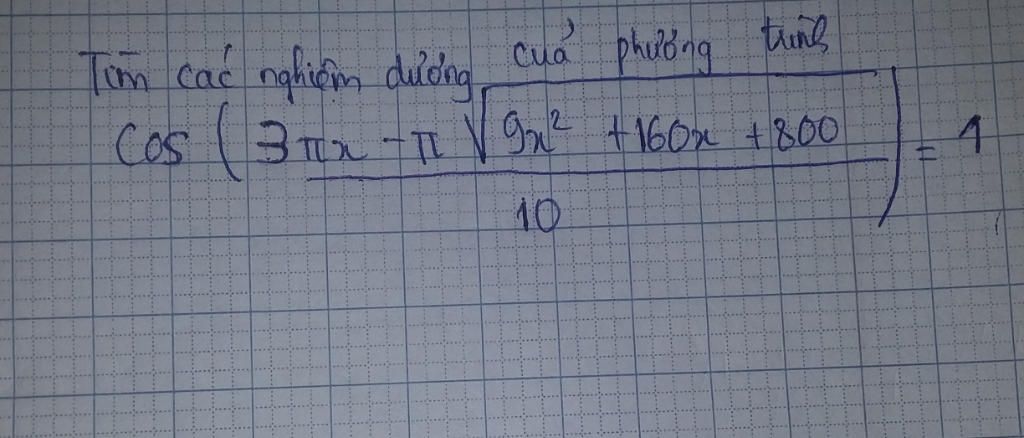 Tìm các nghiệm dương của phương trình
cos ( (3πx - π√(9x² + 160x + 800)) / 10 ) = 1